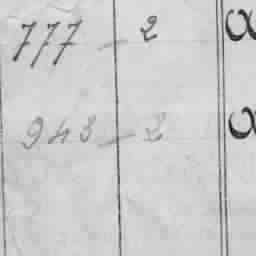 777 - 2
943 - 2